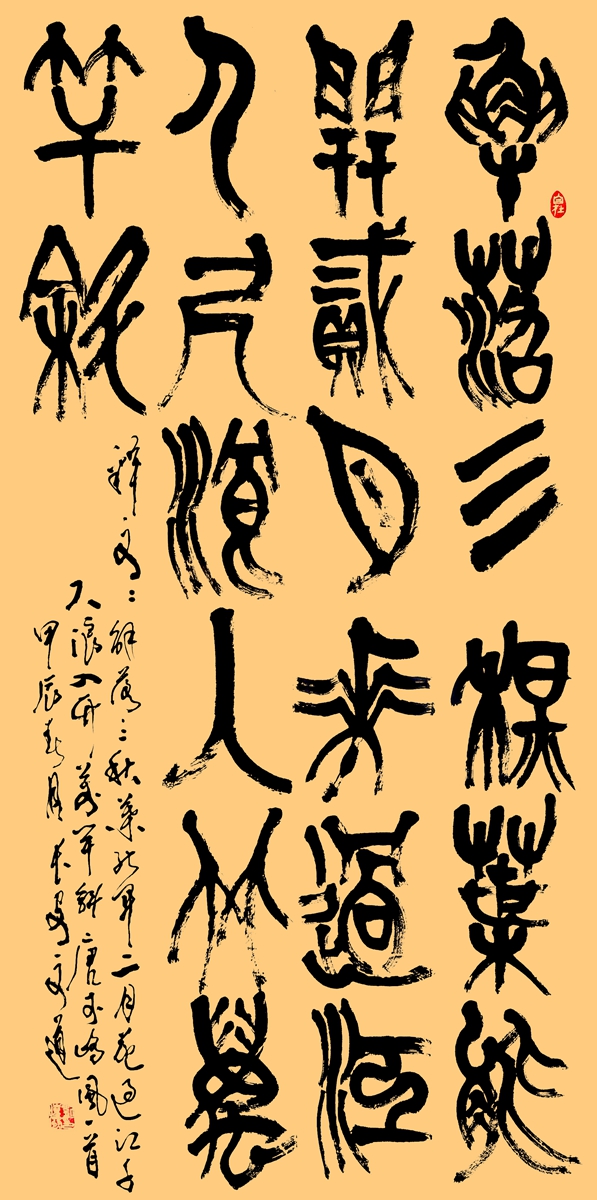 解落三秋葉能
開貳月花過江
千尺浪入竹萬
竿斜
釋文：解落三秋葉能開二月花過江千
尺浪入竹萬竿斜唐李嶠風一首
甲辰春月